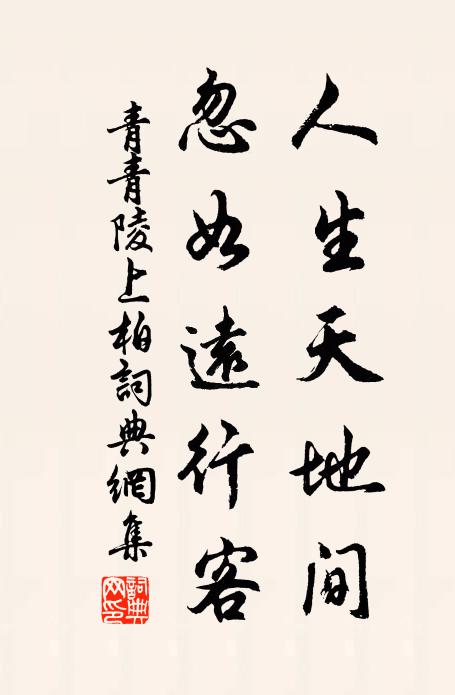 人生天地間
忽如遠行客
青青陵上柏詞典網集
詞典
网印